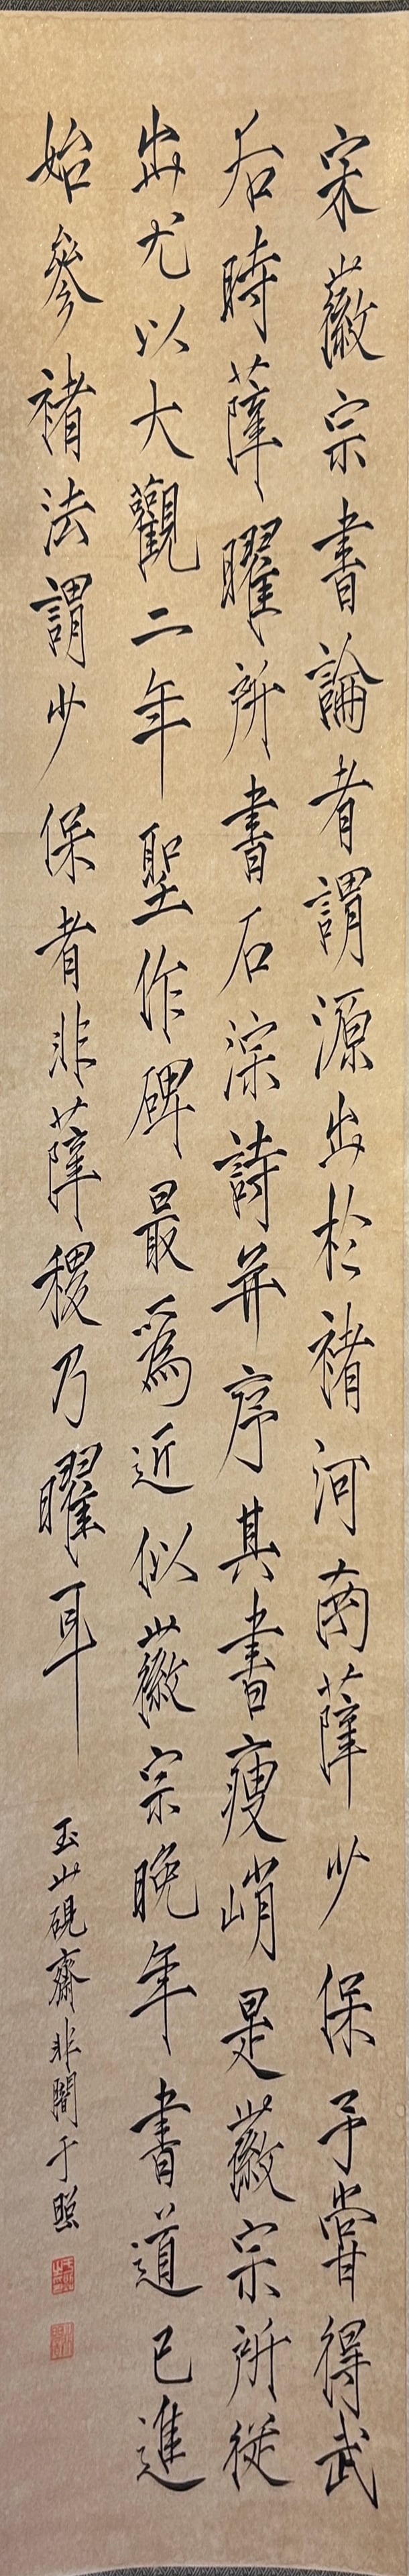 宋徽宗書論者謂源出於褚河南薛少保予嘗得武
后時薛曜所書石淙詩并序其書瘦峭是徽宗所從
出尤以大觀二年聖作碑最為近似徽宗晚年書道已進
始參褚法謂少保者非薛稷乃曜耳
玉山硯齋非闇于照